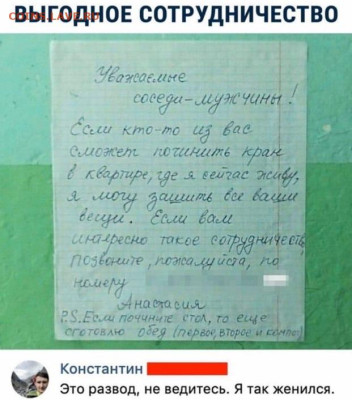 ВЫГОДНОЕ СОТРУДНИЧЕСТВО
Уважаемые
соседи-мужчины!
Если кто-то из вас
сможет починить кран
в квартире, где я сейчас живу,
я могу зашить все ваши
вещи. Если вам
интересно такое сотрудничеств
позвоните, пожалуйста, по
номеру
Анастасия
P.S. Если почините стол, то еще
сготовлю обед (первое, второе и компот)
Константин
Это развод, не ведитесь. Я так женился.